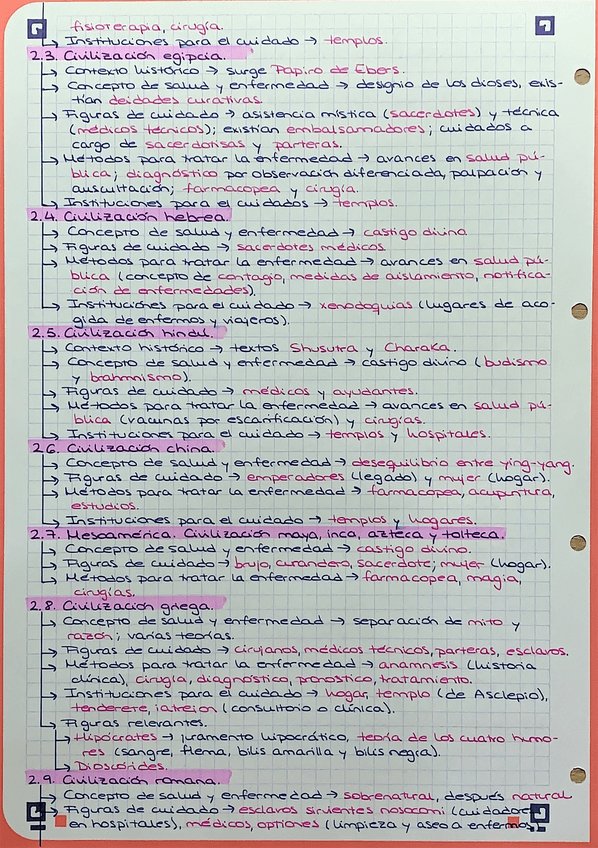 fisioterapia, cirugía.
Instituciones para el cuidado → templos.
2.3. Civilización egipcia.
Contexto histórico → surge Papiro de Ebers.
Concepto de salud y enfermedad → designio de los dioses, exis-
tían deidades curativas.
Figuras de cuidado → asistencia mística (sacerdotes) y técnica
(médicos técnicos); existían embalsamadores; cuidados a
cargo de sacerdotisas y parteras.
Métodos para tratar la enfermedad → avances en salud pú-
blica; diagnóstico por observación diferenciada, palpación y
auscultación; farmacopea y cirugía.
Instituciones para el cuidados → templos.
2.4. Civilización hebrea.
Concepto de salud y enfermedad → castigo divino
Figuras de cuidado → sacerdotes médicos
Métodos para tratar la enfermedad → avances en salud pú-
blica (concepto de contagio, medidas de aislamiento, notifica-
ción de enfermedades).
Instituciones para el cuidado → xenodoquias (lugares de aco-
gida de enfermos y viajeros).
2.5. Civilización hindú.
Contexto histórico → textos Shusutra y Charaka.
Concepto de salud y enfermedad → castigo divino (budismo
y brahmnismo).
Figuras de cuidado → médicos y ayudantes.
Métodos para tratar la enfermedad → avances en salud pú-
blica (vacunas por escarificación) y cirugías.
Instituciones para el cuidado → templos y hospitales.
2.6. Civilización china.
Concepto de salud y enfermedad → desequilibrio entre ying-yang.
Figuras de cuidado → emperadores (legado) y mujer (hogar).
Métodos para tratar la enfermedad → farmacopea, acupuntura,
estudios.
Instituciones para el cuidado → templos y hogares.
2.7. Mesoamérica. Civilización maya, inca, azteca y tolteca.
Concepto de salud y enfermedad → castigo divino.
Figuras de cuidado → brujo, curandero, sacerdote; mujer (hogar).
Métodos para tratar la enfermedad → farmacopea, magia,
cirugías.
2.8. Civilización griega.
Concepto de salud y enfermedad → separación de mito y
razón; varias teorías.
Figuras de cuidado → cirujanos, médicos técnicos, parteras, esclavos.
Métodos para tratar la enfermedad → anamnesis (historia
clínica), cirugía, diagnóstico, pronostico, tratamiento.
Instituciones para el cuidado → hogar, templo (de Asclepio),
tenderete, iatreion (consultorio o clínica).
Figuras relevantes.
Hipócrates → juramento hipocrático, teoría de los cuatro humo-
res (sangre, flema, bilis amarilla y bilis negra).
Dioscórides.
2.9. Civilización romana.
Concepto de salud y enfermedad → sobrenatural, después natural
Figuras de cuidado → esclavos sirvientes nosocomi (cuidadores
en hospitales), médicos, optiones (limpieza y aseo a enfermos